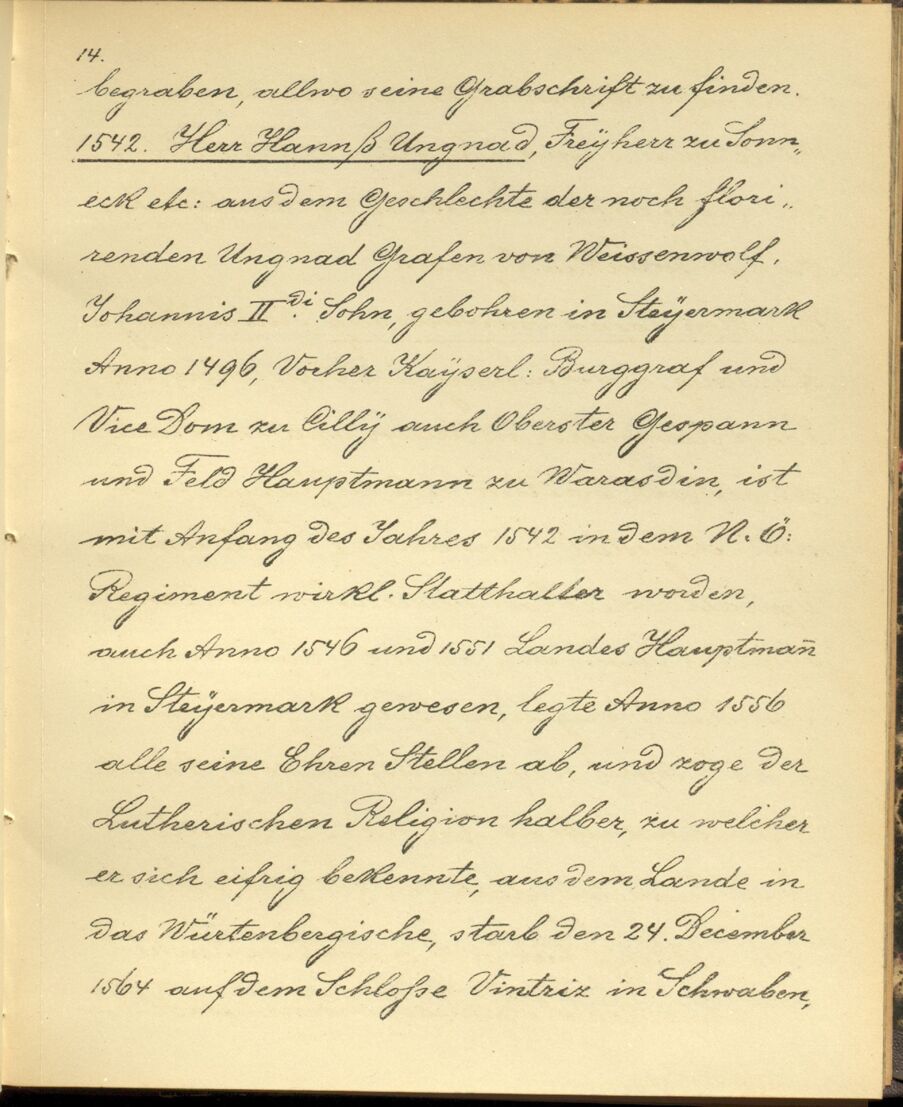 14.
begraben, allwo seine Grabschrift zu finden.
1542. Herr Hannß Ungnad, Freÿherr zu Sonn„
eck etc: aus dem Geschlechte der noch flori„
renden Ungnad Grafen von Weissenwolf,
Johannis II di. Sohn, gebohren in Steÿermark
Anno 1496, Vorher Kaÿserl: Burggraf und
Vice Dom zu Cillÿ auch Oberster Gespann
und Feld Hauptmann zu Warasdin, ist
mit Anfang des Jahres 1542 in dem N. Ö:
Regiment wirkl. Statthalter worden,
auch Anno 1546 und 1551 Landes Hauptmañ
in Steÿermark gewesen, legte Anno 1556
alle seine Ehren Stellen ab, und zoge der
Lutherischen Religion halber, zu welcher
er sich eifrig bekennte, aus dem Lande in
das Würtenbergische, starb den 24. December
1564 auf dem Schloße Vintriz in Schwaben,